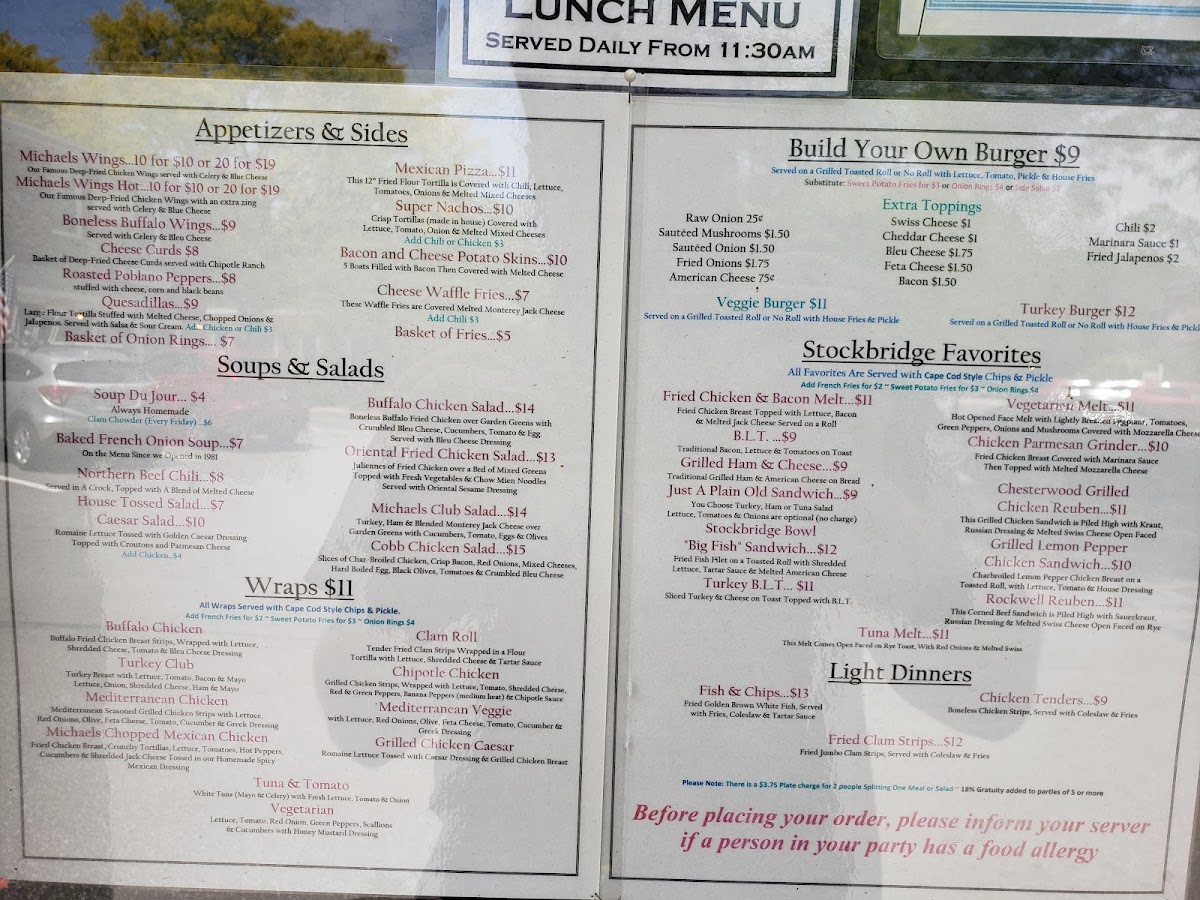 LUNCH MENU
SERVED DAILY FROM 11:30AM
Appetizers & Sides
Michaels Wings...10 for $10 or 20 for $19
Our Famous Deep-Fried Chicken Wings served with Celery & Blue Cheese
Michaels Wings Hot...10 for $10 or 20 for $19
Our Famous Deep-Fried Chicken Wings with an extra zing
served with Celery & Blue Cheese
Boneless Buffalo Wings...$9
Served with Celery & Bleu Cheese
Cheese Curds $8
Basket of Deep-Fried Cheese Curds served with Chipotle Ranch
Roasted Poblano Peppers...$8
stuffed with cheese, corn and black beans
Quesadillas...$9
Large Flour Tortilla Stuffed with Melted Cheese, Chopped Onions &
Jalapenos. Served with Salsa & Sour Cream. Add Chicken or Chili $3
Basket of Onion Rings.... $7
Mexican Pizza...$11
This 12" Fried Flour Tortilla is Covered with Chili, Lettuce,
Tomatoes, Onions & Melted Mixed Cheeses
Super Nachos...$10
Crisp Tortillas (made in house) Covered with
Lettuce, Tomato, Onion & Melted Mixed Cheeses
Add Chili or Chicken $3
Bacon and Cheese Potato Skins...$10
5 Boats Filled with Bacon Then Covered with Melted Cheese
Cheese Waffle Fries...$7
These Waffle Fries are Covered Melted Monterey Jack Cheese
Add Chili $3
Basket of Fries...$5
Soups & Salads
Soup Du Jour... $4
Always Homemade
Clam Chowder (Every Friday) ..$6
Baked French Onion Soup...$7
On the Menu Since we Opened in 1981
Northern Beef Chili...$8
Served in A Crock, Topped with A Blend of Melted Cheese
House Tossed Salad...$7
Caesar Salad...$10
Romaine Lettuce Tossed with Golden Caesar Dressing
Topped with Croutons and Parmesan Cheese
Add Chicken..$4
Buffalo Chicken Salad...$14
Boneless Buffalo Fried Chicken over Garden Greens with
Crumbled Bleu Cheese, Cucumbers, Tomato & Egg
Served with Bleu Cheese Dressing
Oriental Fried Chicken Salad...$13
Juliennes of Fried Chicken over a Bed of Mixed Greens
Topped with Fresh Vegetables & Chow Mien Noodles
Served with Oriental Sesame Dressing
Michaels Club Salad...$14
Turkey, Ham & Blended Monterey Jack Cheese over
Garden Greens with Cucumbers, Tomato, Eggs & Olives
Cobb Chicken Salad...$15
Slices of Char-Broiled Chicken, Crisp Bacon, Red Onions, Mixed Cheeses,
Hard Boiled Egg, Black Olives, Tomatoes & Crumbled Bleu Cheese
Wraps $11
All Wraps Served with Cape Cod Style Chips & Pickle.
Add French Fries for $2 ~ Sweet Potato Fries for $3 ~ Onion Rings $4
Buffalo Chicken
Buffalo Fried Chicken Breast Strips, Wrapped with Lettuce,
Shredded Cheese, Tomato & Bleu Cheese Dressing
Turkey Club
Turkey Breast with Lettuce, Tomato, Bacon & Mayo
Lettuce, Onion, Shredded Cheese, Ham & Mayo
Mediterranean Chicken
Mediterranean Seasoned Grilled Chicken Strips with Lettuce,
Red Onions, Olive, Feta Cheese, Tomato, Cucumber & Greek Dressing
Michaels Chopped Mexican Chicken
Fried Chicken Breast, Crunchy Tortillas, Lettuce, Tomatoes, Hot Peppers,
Cucumbers & Shredded Jack Cheese Tossed in our Homemade Spicy
Mexican Dressing
Clam Roll
Tender Fried Clam Strips Wrapped in a Flour
Tortilla with Lettuce, Shredded Cheese & Tartar Sauce
Chipotle Chicken
Grilled Chicken Strips, Wrapped with Lettuce, Tomato, Shredded Cheese,
Red & Green Peppers, Banana Peppers (medium heat) & Chipotle Sauce
Mediterranean Veggie
with Lettuce, Red Onions, Olive, Feta Cheese, Tomato, Cucumber &
Greek Dressing
Grilled Chicken Caesar
Romaine Lettuce Tossed with Caesar Dressing & Grilled Chicken Breast
Tuna & Tomato
White Tuna (Mayo & Celery) with Fresh Lettuce, Tomato & Onion
Vegetarian
Lettuce, Tomato, Red Onion, Green Peppers, Scallions
& Cucumbers with Honey Mustard Dressing
Build Your Own Burger $9
Served on a Grilled Toasted Roll or No Roll with Lettuce, Tomato, Pickle & House Fries
Substitute: Sweet Potato Fries for $3 or Onion Rings $4 or Side Salad $2
Extra Toppings
Raw Onion 25¢
Sautéed Mushrooms $1.50
Sautéed Onion $1.50
Fried Onions $1.75
American Cheese 75¢
Swiss Cheese $1
Cheddar Cheese $1
Bleu Cheese $1.75
Feta Cheese $1.50
Bacon $1.50
Chili $2
Marinara Sauce $1
Fried Jalapenos $2
Veggie Burger $11
Served on a Grilled Toasted Roll or No Roll with House Fries & Pickle
Turkey Burger $12
Served on a Grilled Toasted Roll or No Roll with House Fries & Pickl
Stockbridge Favorites
All Favorites Are Served with Cape Cod Style Chips & Pickle
Add French Fries for $2 ~ Sweet Potato Fries for $3 ~ Onion Rings $4
Fried Chicken & Bacon Melt...$11
Fried Chicken Breast Topped with Lettuce, Bacon
& Melted Jack Cheese Served on a Roll
B.L.T. ...$9
Traditional Bacon, Lettuce & Tomatoes on Toast
Grilled Ham & Cheese...$9
Traditional Grilled Ham & American Cheese on Bread
Just A Plain Old Sandwich...$9
You Choose Turkey, Ham or Tuna Salad
Lettuce, Tomatoes & Onions are optional (no charge)
Stockbridge Bowl
"Big Fish" Sandwich...$12
Fried Fish Filet on a Toasted Roll with Shredded
Lettuce, Tartar Sauce & Melted American Cheese
Turkey B.L.T... $11
Sliced Turkey & Cheese on Toast Topped with B.L.T.
Vegetarian Melt...$11
Hot Opened Face Melt with Lightly Breaded Eggplant, Tomatoes,
Green Peppers, Onions and Mushrooms Covered with Mozzarella Cheese
Chicken Parmesan Grinder...$10
Fried Chicken Breast Covered with Marinara Sauce
Then Topped with Melted Mozzarella Cheese
Chesterwood Grilled
Chicken Reuben...$11
This Grilled Chicken Sandwich is Piled High with Kraut,
Russian Dressing & Melted Swiss Cheese Open Faced
Grilled Lemon Pepper
Chicken Sandwich...$10
Charbroiled Lemon Pepper Chicken Breast on a
Toasted Roll, with Lettuce, Tomato & House Dressing
Rockwell Reuben...$11
This Corned Beef Sandwich is Piled High with Sauerkraut,
Russian Dressing & Melted Swiss Cheese Open Faced on Rye
Tuna Melt...$11
This Melt Comes Open Faced on Rye Toast, With Red Onions & Melted Swiss
Light Dinners
Fish & Chips...$13
Fried Golden Brown White Fish, Served
with Fries, Coleslaw & Tartar Sauce
Chicken Tenders...$9
Boneless Chicken Strips, Served with Coleslaw & Fries
Fried Clam Strips...$12
Fried Jumbo Clam Strips, Served with Coleslaw & Fries
Please Note: There is a $3.75 Plate charge for 2 people Splitting One Meal or Salad ~ 18% Gratuity added to parties of 5 or more
Before placing your order, please inform your server
if a person in your party has a food allergy